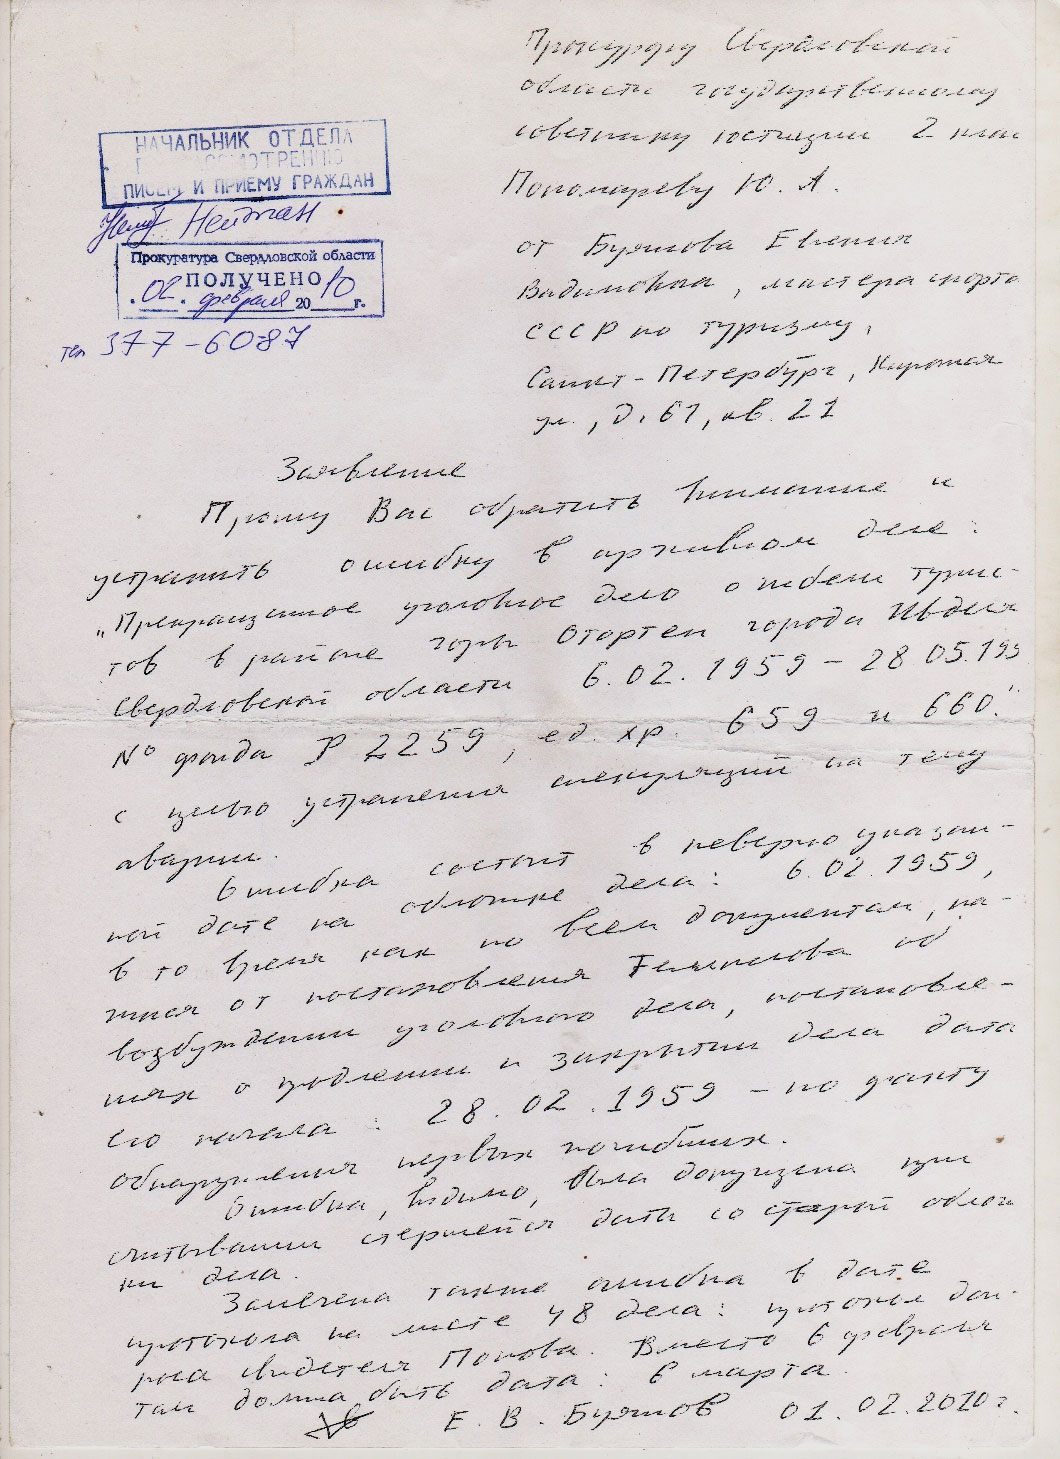 Прокурору Свердловской
области государственному
советнику юстиции 2 класс
Пономареву Ю. А.
НАЧАЛЬНИК ОТДЕЛА
ПИСЕМ И ПРИЕМУ ГРАЖДАН
Нейман
от Буянова Евгения
Вадимовича, мастера спорта
СССР по туризму,
Санкт-Петербург, Кирочная
ул., д. 61, кв. 21
Прокуратура Свердловской области
ПОЛУЧЕНО
02. февраля 2010 г.
тел 377-6087
Заявление
Прошу Вас обратить внимание и
устранить ошибку в архивном деле:
„Прекращенное уголовное дело о гибели турис-
тов в районе горы Отортен города Ивделя
Свердловской области 6.02.1959 – 28.05.195
№ фонда Р 2259, ед. хр. 659 и 660."
с целью устранения спекуляций на тему
аварии.
Ошибка состоит в неверно указан-
ной дате на обложке дела: 6.02.1959,
в то время как по всем документам, на-
чиная от постановления Темпалова об
возбуждении уголовного дела, постановле-
ниях о продлении и закрытии дела дата
его начала: 28.02.1959 – по факту
обнаружения первых погибших.
Ошибка, видимо, была допущена при
считывании стершейся даты со старой облож
ки дела.
Замечена также ошибка в дате
протокола на листе 48 дела: протокол доп-
роса свидетеля Попова. Вместо 6 февраля
там должна быть дата: 6 марта.
Е. В. Буянов 01.02.2010 г.